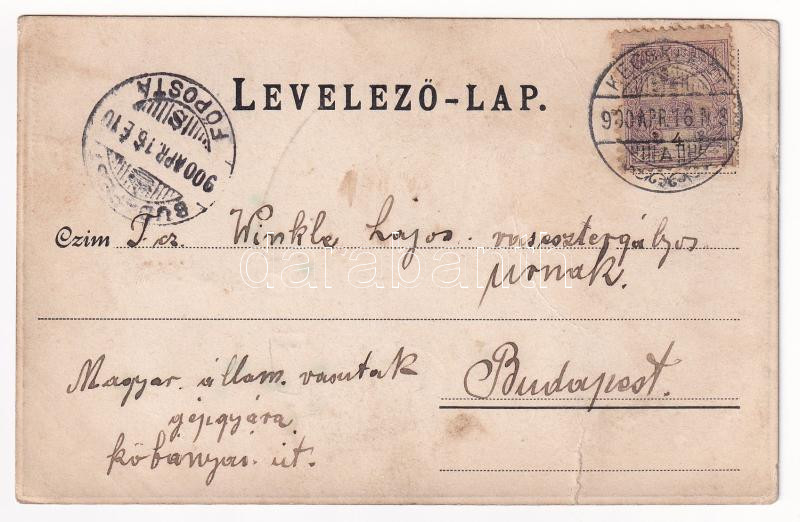 LEVELEZŐ-LAP.
900 APR. 16 É 10
FŐPOSTA
900 APR. 16 N. 3
4
Czim T. cz. Winkle Lajos. vasesztergályos
urnak.
Magyar. állam. vasutak
gépgyára
kőbanyai. út.
Budapest.
darabanth